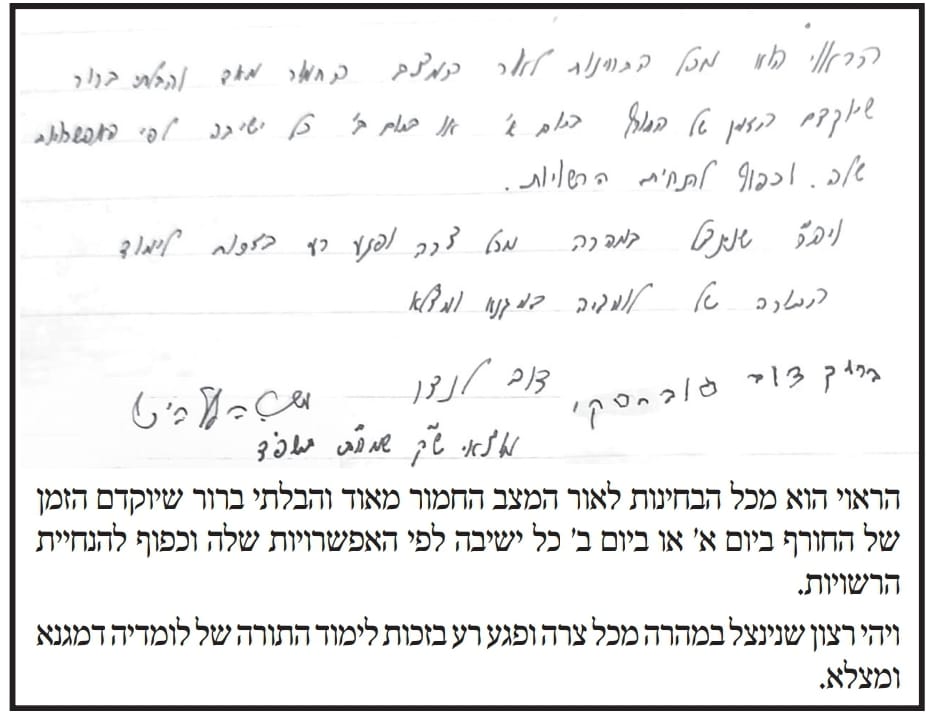 הראוי הוא מכל הבחינות לאור המצב החמור מאד והבלתי ברור
שיוקדם הזמן של החורף ביום א' או ביום ב' כל ישיבה לפי האפשרויות
שלה. וכפוף להנחיית הרשויות.
ויה"ר שנינצל במהרה מכל צרה ופגע רע בזכות לימוד
התורה של לומדיה דמגנא ומצלא
ברוך דוב פוברסקי
דוב לנדו
משה הלל הירש
מוצאי ש"ק שמח"ת תשפ"ד
הראוי הוא מכל הבחינות לאור המצב החמור מאוד והבלתי ברור שיוקדם הזמן
של החורף ביום א' או ביום ב' כל ישיבה לפי האפשרויות שלה וכפוף להנחיית
הרשויות.
ויהי רצון שנינצל במהרה מכל צרה ופגע רע בזכות לימוד התורה של לומדיה דמגנא
ומצלא.